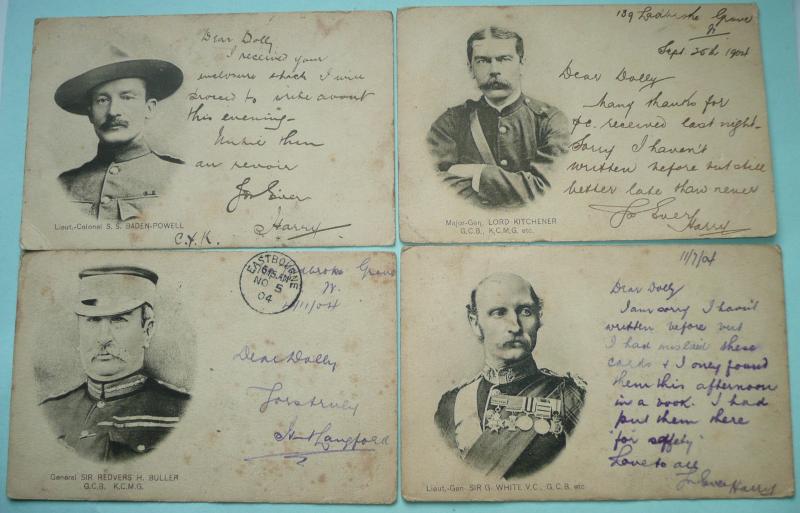 Dear Dolly
I received your
enclosure which I will
proceed to write about
this evening-
Until then
au revoir
Yrs Ever
Harry
C.X.K.
Lieut.-Colonel S. S. BADEN-POWELL
139 Ladbroke Grove
W
Sept 26th 1904
Dear Dolly
Many thanks for
P.C. received last night-
Sorry I haven't
written before but still
better late than never
Yrs Ever
Harry
Major-Gen. LORD KITCHENER
G.C.B., K.C.M.G. etc.
EASTBOURNE
NO 5
04
Grove
W.
4/11/04
Dear Dolly
Yours truly
Langford
General SIR REDVERS H. BULLER
G.C.B. K.C.M.G.
11/7/04
Dear Dolly
I am sorry I havn't
written before but
I had mislaid these
cards & I only found
them this afternoon
in a book. I had
put them there
'for saffety'
Love to all
Yrs Ever Harry
Lieut.-Gen. SIR G. WHITE V.C., G.C.B. etc